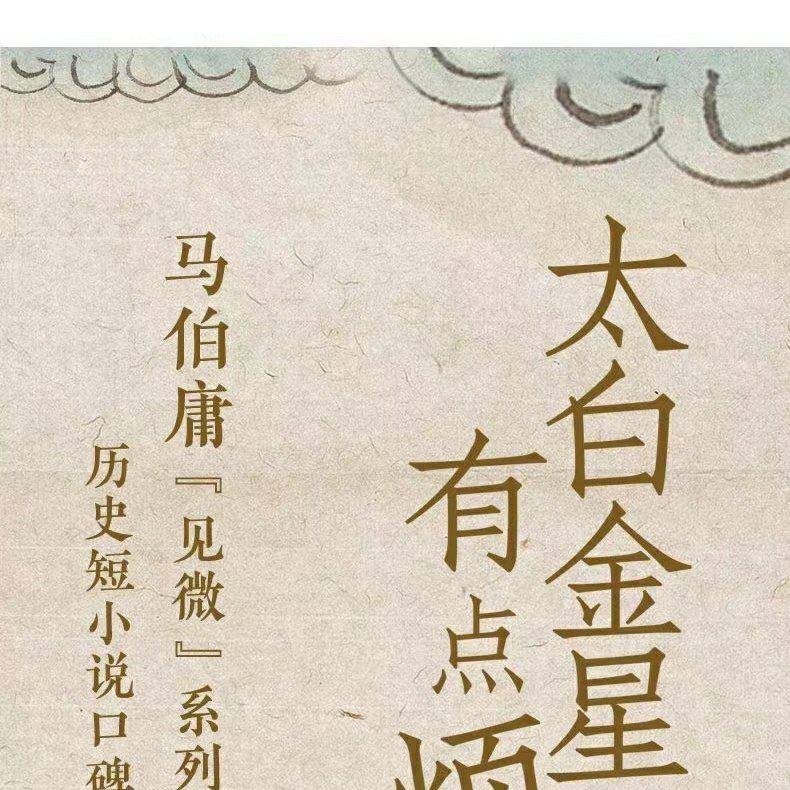 太白金星
有点烦
马伯庸『见微』系列
历史短小说口碑